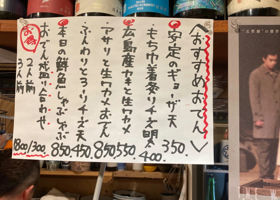 〈おすすめおでん〉
安定のギョーザ天 350.
もち巾着葵リチーズ明太 400
広島産カキと生ワカメ 550
アサリと生ワカメおでん 850
ふんわりとろ〜りチーズ天 450
本日の鮮魚しゃぶしゃぶ 850
おでん盛り合わせ
2人前
3人前
1300/1800